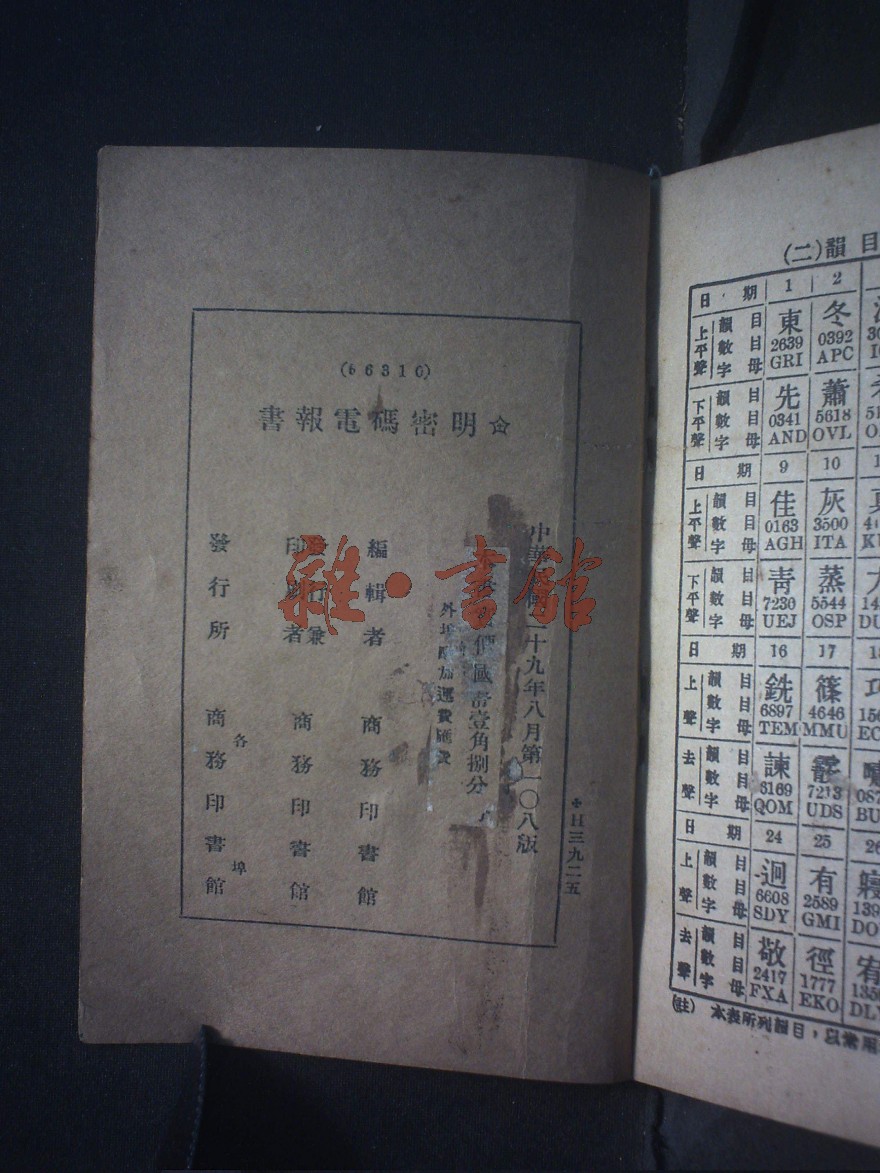 (66310)
明密碼電報書
中華民國二十九年八月第一〇八版
價國幣壹角捌分
外埠酌加運費匯費
編輯者 商務印書館
發行兼
印刷者 商務印書館
發行所 商務印書館
各埠
H三九二五
雜·書館
(二)韻目
日期 1 2
上平聲 韻目 東 冬
數目 2639 0392
字母 GRI APC
下平聲 韻目 先 蕭
數目 0341 5618
字母 AND OVL
日期 9 10
上平聲 韻目 佳 灰
數目 0163 3500
字母 AGH ITA
下平聲 韻目 青 蒸
數目 7230 5544
字母 UEJ OSP
日期 16 17
上聲 韻目 銑 篠
數目 6897 4646
字母 TEM MMU
去聲 韻目 諫 霰
數目 3169 7213
字母 QOM UDS
日期 24 25 26
上聲 韻目 迥 有
數目 6608 2589
字母 SDY GMI
去聲 韻目 敬 徑 宥
數目 2417 1777
字母 FXA EKO
(註) 本表所列韻目,以常用